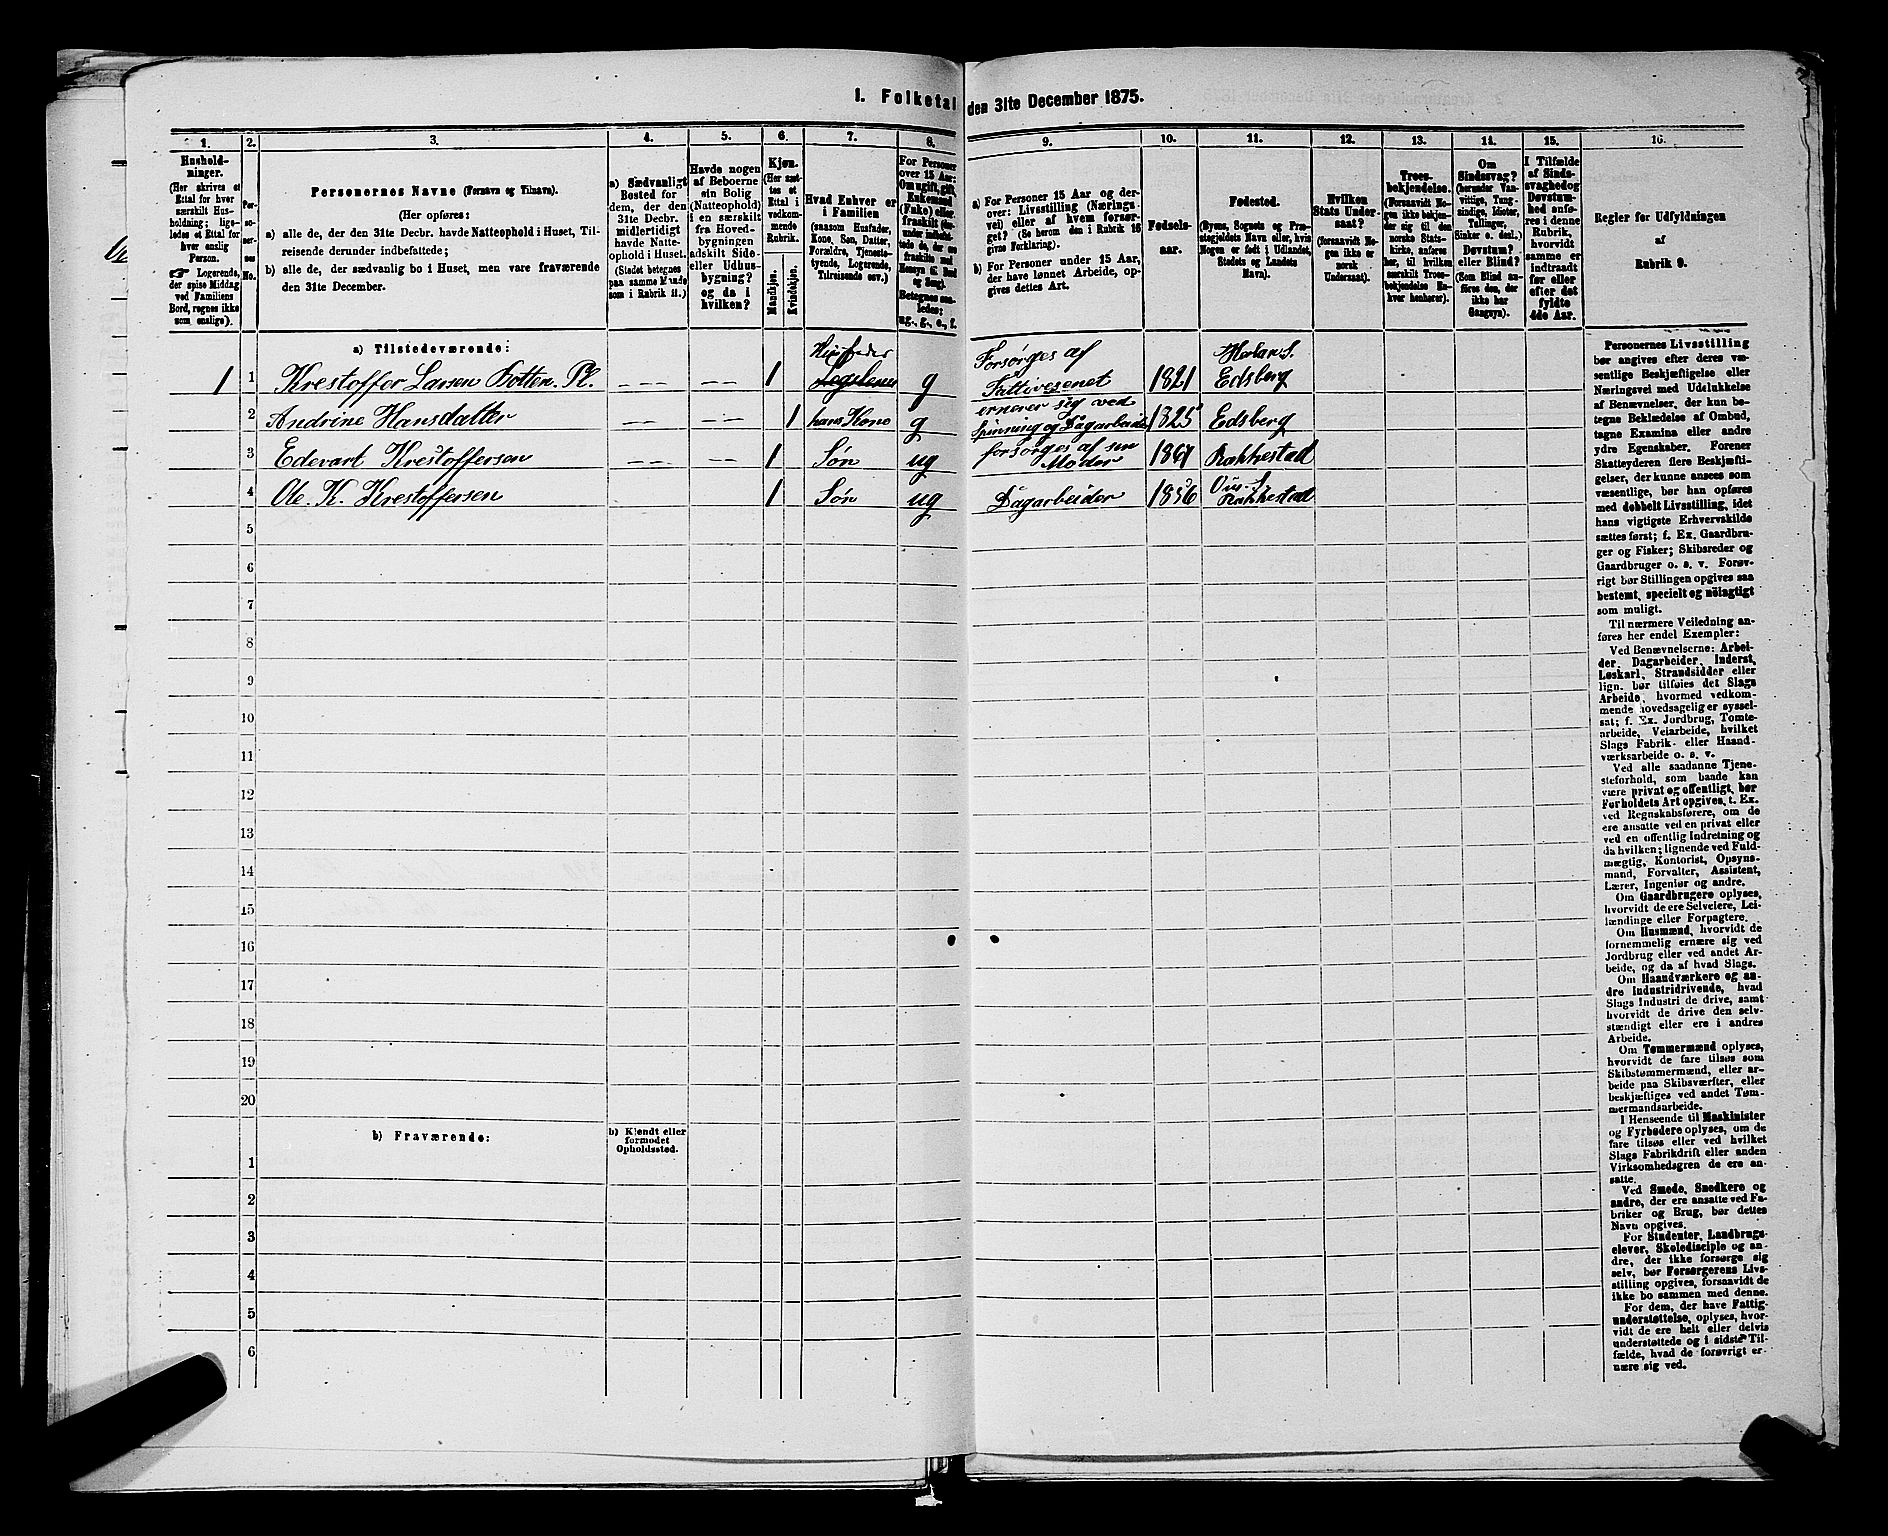 1. Folketal den 31te December 1875.
1.
Hushold-
ninger.
(Her skrives et
Ettal for hver
særskilt Hus-
holdning; lige-
ledes et Ettal for
hver enslig
Person.
Logerende,
der spise Middag
ved Familiens
Bord, regnes ikke
som enslige).
2.
Per-
so-
ner-
nes
No.
3.
Personernes Navne (Fornavn og Tilnavn).
(Her opføres:
a) alle de, der den 31te Decbr. havde Natteophold i Huset, Til-
reisende derunder indbefattede;
b) alle de, der sædvanlig bo i Huset, men vare fraværende
den 31te December.
4.
a) Sædvanligt
Bosted for
dem, der den
31te Decbr.
midlertidigt
havde Natte-
ophold i Huset.
(Stedet betegnes
paa samme Maade
som i Rubrik 11.)
5.
Havde nogen
af Beboerne
sin Bolig
(Natteophold)
i en særskilt
fra Hoved-
bygningen
adskilt Side-
eller Udhus-
bygning?
og da i
hvilken?
6.
Kjøn.
(Her sæt-
tes et
Ettal i
vedkom-
mende
Rubrik.
Mandkjøn.
Kvindekjøn.
7.
Hvad Enhver er
i Familien
(saasom Husfader,
Kone, Søn, Datter,
Forældre, Tjeneste-
tyende, Logerende,
Tilreisende osv.)
8.
For Personer
over 15 Aar:
Om ugift, gift,
Enkemand
(Enke) eller
fraskilt
Betegnes saa-
ledes:
ug., g., e., f.
9.
a) For Personer 15 Aar og der-
over: Livsstilling (Nærings-
vei) eller af hvem forsør-
get? (Se herom den i Rubrik 16
givne Forklaring).
b) For Personer under 15 Aar,
der have lønnet Arbeide, op-
gives dettes Art.
10.
Fødsels-
aar.
11.
Fødested.
(Byens, Sognets og Præ-
stegjeldets Navn eller, hvis
Nogen er født i Udlandet,
Stedets og Landets
Navn).
12.
Hvilken
Stats Under-
saat?
(forsaavidt No-
gen ikke er
norsk
Undersaat).
13.
Troes-
bekjendelse.
(Forsaavidt No-
gen ikke bekjen-
der sig til den
norske Stats-
kirke, anføres
her, til hvilken
særskilt Troes-
bekjendelse En-
hver henhører).
14.
Om
Sindssvag?
(herunder Van-
vittige, Tung-
sindige, Idioter,
Tullinger,
Sinker o. desl.)
Døvstum?
eller Blind?
(Som Blind an-
føres den, der
ikke har
Gangsyn).
15.
I Tilfælde
af Sinds-
svaghed og
Døvstum-
hed anfø-
res i denne
Rubrik,
hvorvidt
samme er
indtraadt
før eller
efter det
fyldte
4de Aar.
16.
Regler for Udfyldningen
af
Rubrik 9.
a) Tilstedeværende:
1 1 Krestoffer Larsen Botten. Pl. — — — — 1 Husfader g Forsørges af Fattivesenet 1821 Herlan S. Edsberg
2 Andrine Hansdatter — — — — 1 hans Kone g ernerer sig ved Spinning og Dagarbeide 1825 Edsberg
3 Edevart Krestoffersen — — — — 1 Søn ug forsørges af sin Moder 1861 Rakkestad
4 Ole. K. Krestoffersen 1 Søn ug Dagarbeider 1856 Rakkestad
5
6
7
8
9
10
11
12
13
14
15
16
17
18
19
20
b) Fraværende:
b) Kjendt eller
formodet
Opholdssted.
1
2
3
4
5
6
Personernes Livsstilling
bør angives efter deres væ-
sentlige Beskjæftigelse eller
Næringsvei med Udelukkelse
af Benævnelser, der kun be-
tegne Beklædelse af Ombud,
tagne Examina eller andre
ydre Egenskaber. Forener
Skatteyderen flere Beskjæfti-
gelser, der kunne ansees som
væsentlige, bør han opføres
med dobbelt Livsstilling, idet
hans vigtigste Erhvervskilde
sættes først; f. Ex. Gaardbru-
ger og Fisker; Skibsreder og
Gaardbruger o. s. v. Forøv-
rigt bør Stillingen opgives saa
bestemt, specielt og nöiagtigt
som muligt.
Til nærmere Veiledning an-
føres her endel Exempler:
Ved Benævnelserne: Arbei-
der, Dagarbeider, Inderst,
Løskarl, Strandsidder eller
lign. bør tilføies det Slags
Arbeide, hvormed vedkom-
mende hovedsagelig er syssel-
sat; f. Ex. Jordbrug, Tomte-
arbeide, Veiarbeide, hvilket
Slags Fabrik- eller Haand-
værksarbeide o. s. v.
Ved alle saadanne Tjene-
steforhold, som baade kan
være privat og offentligt, bør
Forholdets Art opgives, t. Ex.
ved Regnskabsførere, om de
ere ansatte ved en privat eller
ved en offentlig Indretning og
da hvilken; lignende ved Fuld-
mægtig, Kontorist, Opsyns-
mand, Forvalter, Assistent,
Lærer, Ingeniør og andre.
Om Gaardbrugere oplyses,
hvorvidt de ere Selveiere, Lei-
lændinge eller Forpagtere.
Om Husmænd, hvorvidt de
fornemmelig ernære sig ved
Jordbrug eller ved andet Ar-
beide, og da af hvad Slags.
Om Haandværkere og an-
dre Industridrivende, hvad
Slags Industri de drive, samt
hvorvidt de drive den selv-
stændigt eller ere i andres
Arbeide.
Om Tømmermænd oplyses,
hvorvidt de fare tilsøs som
Skibstømmermænd, eller ar-
beide paa Skibsværfter, eller
beskjæftiges ved andet Tøm-
mermandsarbeide.
I Henseende til Maskinister
og Fyrbødere oplyses, om de
fare tilsøs eller ved hvilket
Slags Fabrikdrift eller anden
Virksomhedsgren de ere an-
satte.
Ved Smede, Snedkere og
andre, der ere ansatte ved Fa-
briker og Brug, bør dettes
Navn opgives.
For Studenter, Landbrugs-
elever, Skoledisciple og an-
dre, der ikke forsørge sig
selv, bør Forsørgerens Livs-
stilling opgives, forsaavidt de
ikke bo sammen med denne.
For dem, der have Fattig-
understøttelse, oplyses, hvor-
vidt de ere helt eller delvis
understøttede og i sidste Til-
fælde, hvad de forøvrigt er-
nære sig ved.